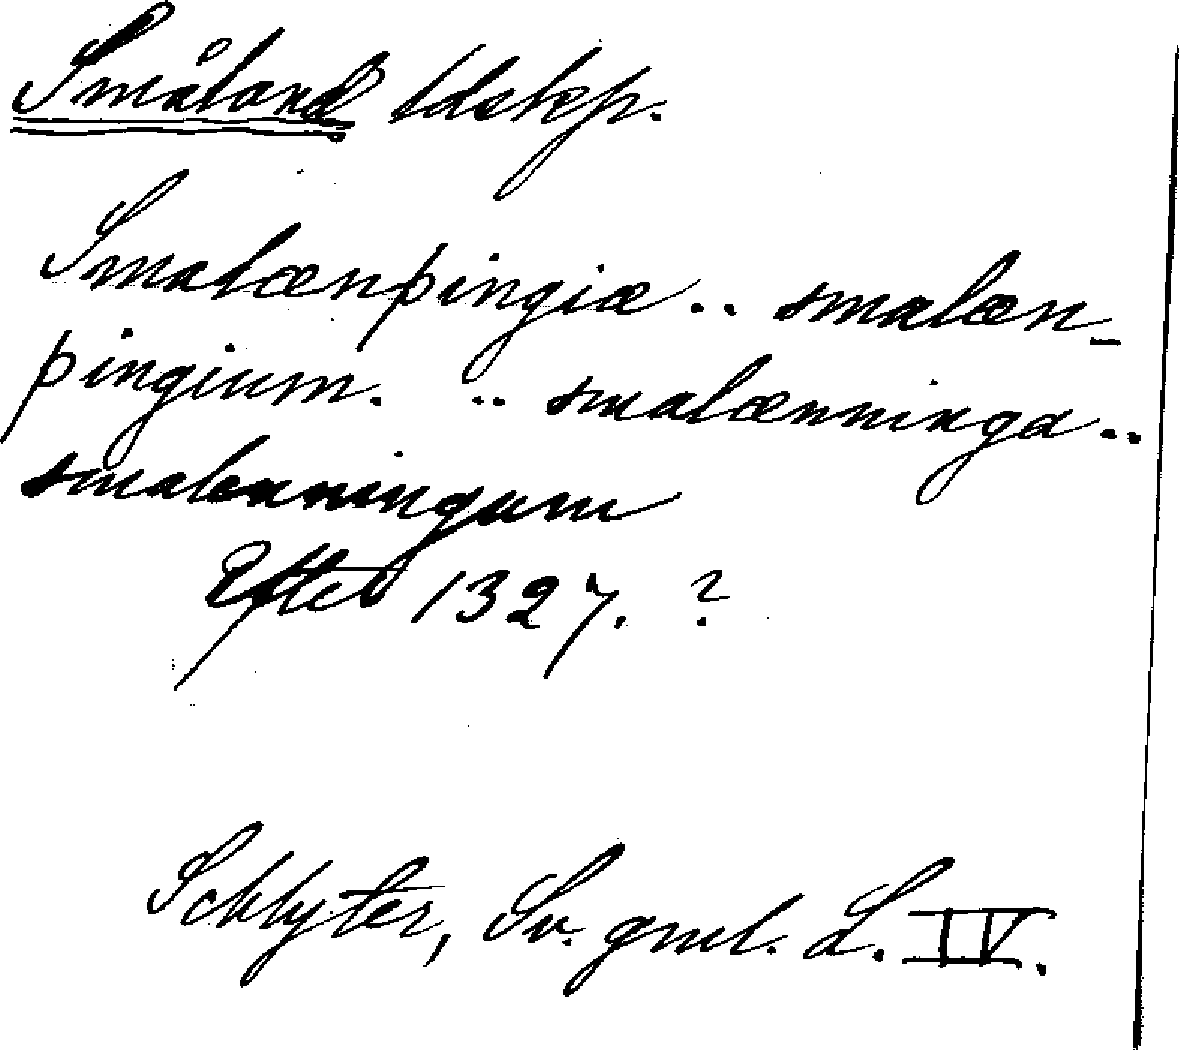 Småland ldskp.
Smalænþingiæ .. smalæn-
þingium. .. smalænninga ..
smalenningum
Efter 1327. ?
Schlyter, Sv. gml. L. IV.